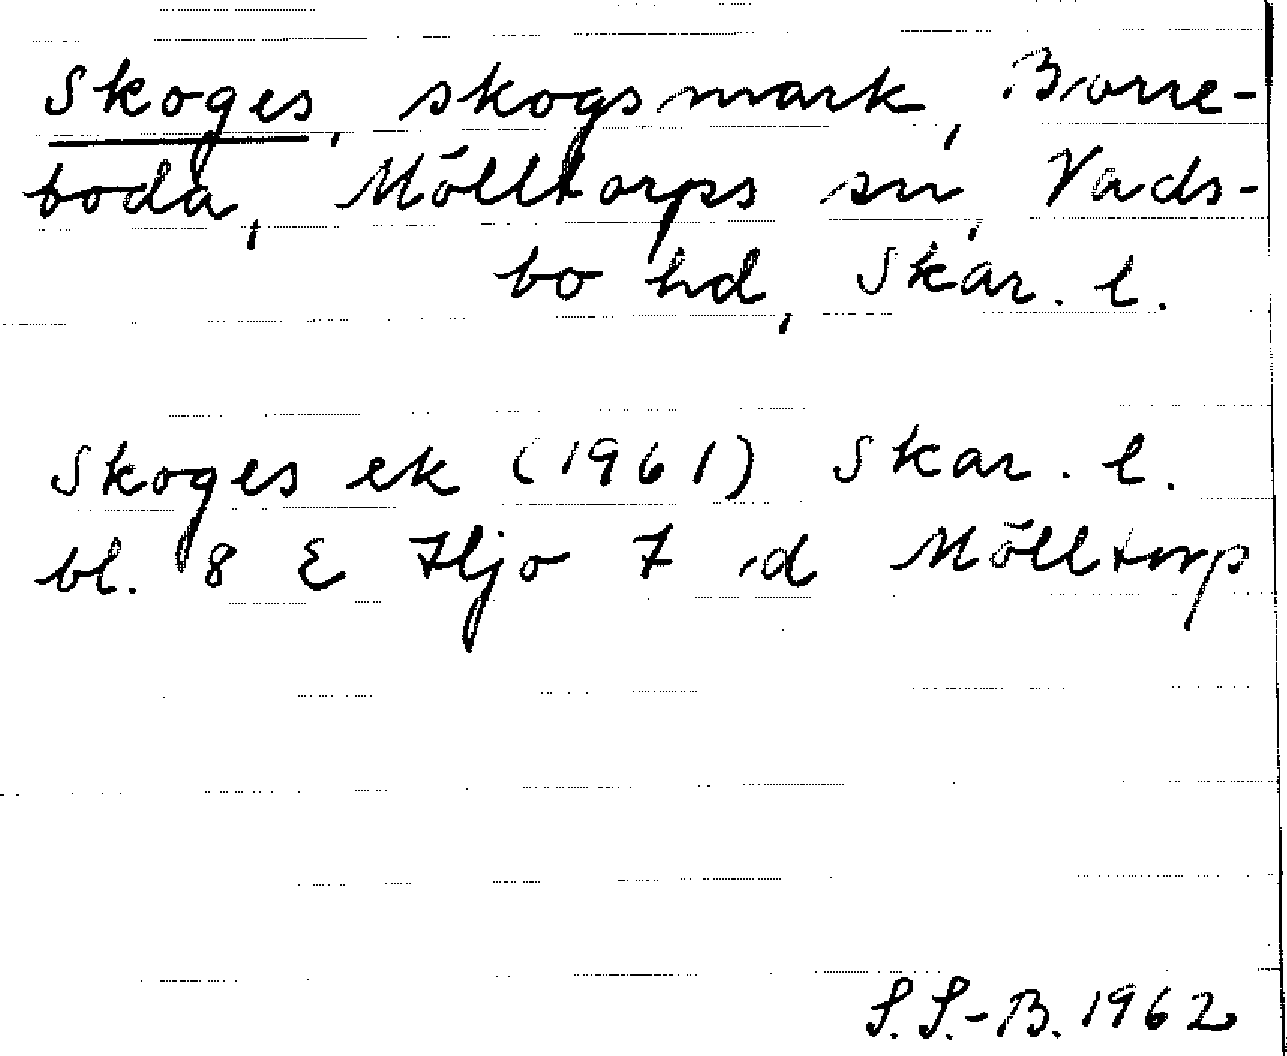 Skoges, skogsmark, Borre-
boda, Mölltorps sn, Vads-
bo hd, Skar. l.
Skoges ek (1961) Skar. l.
bl. 8 E Hjo 7 d Mölltorp
S. S.-B. 1962